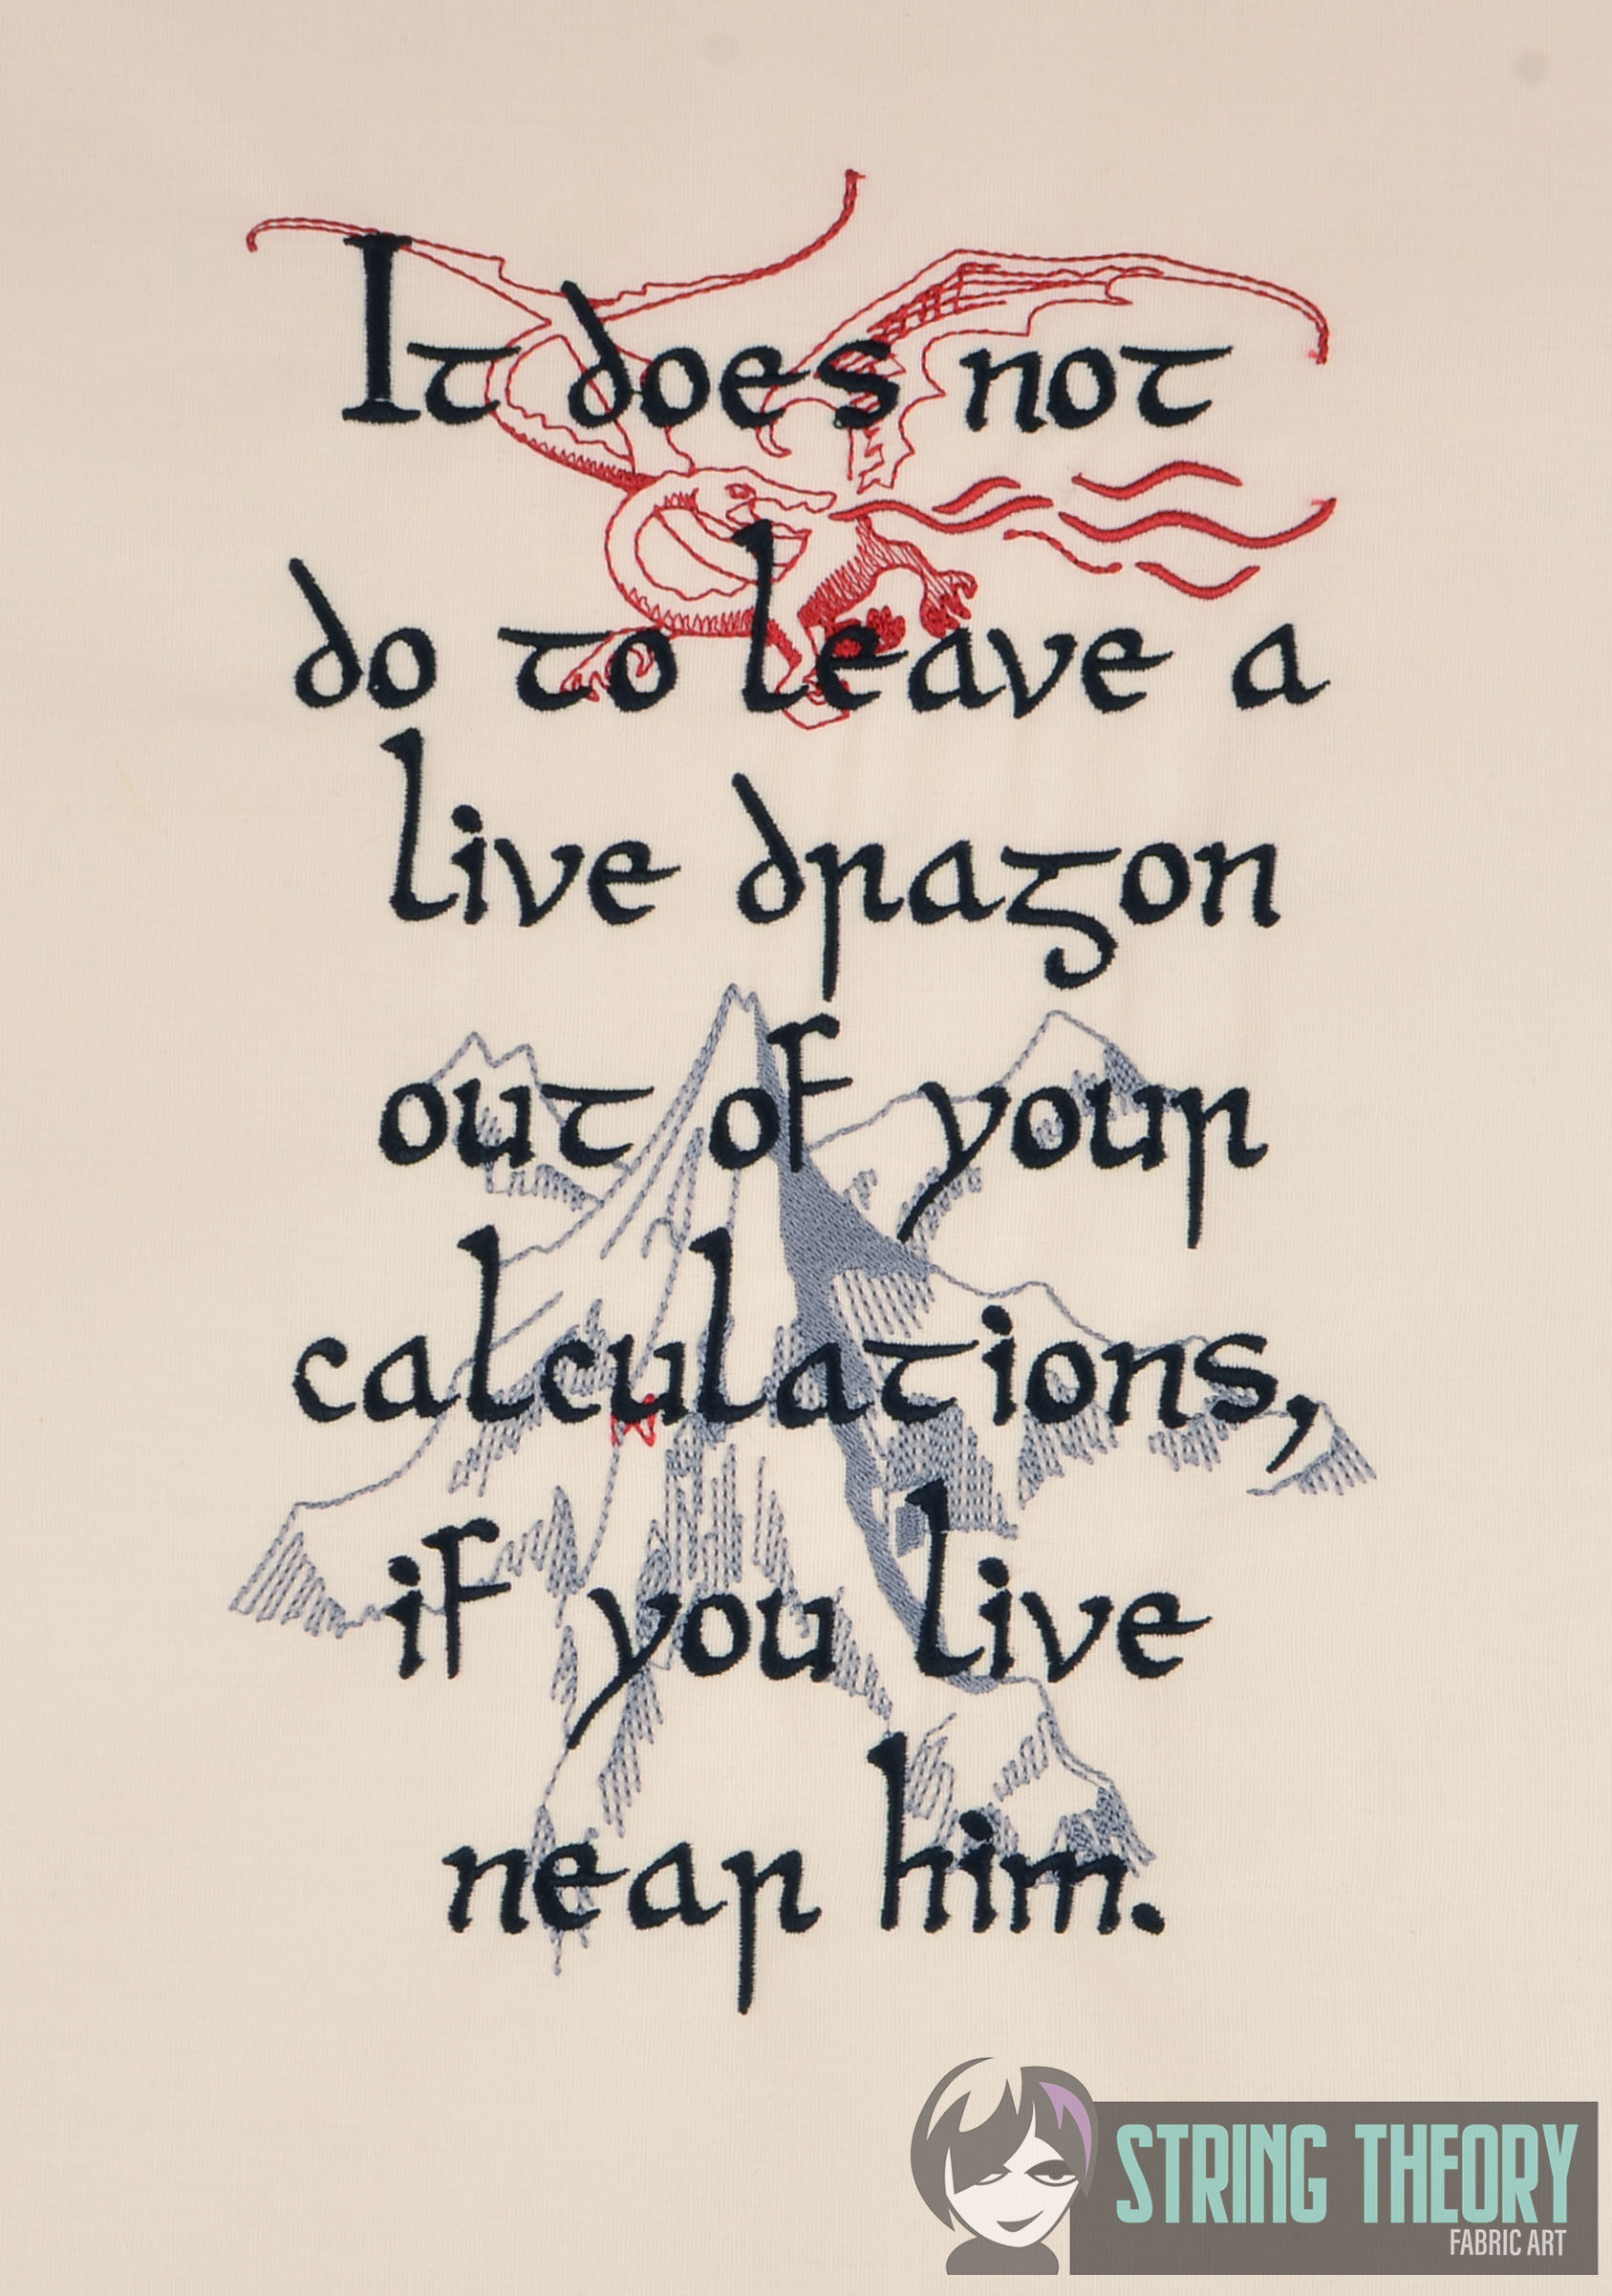 It does not
do to leave a
live dragon
out of your
calculations,
if you live
near him.
STRING THEORY
FABRIC ART